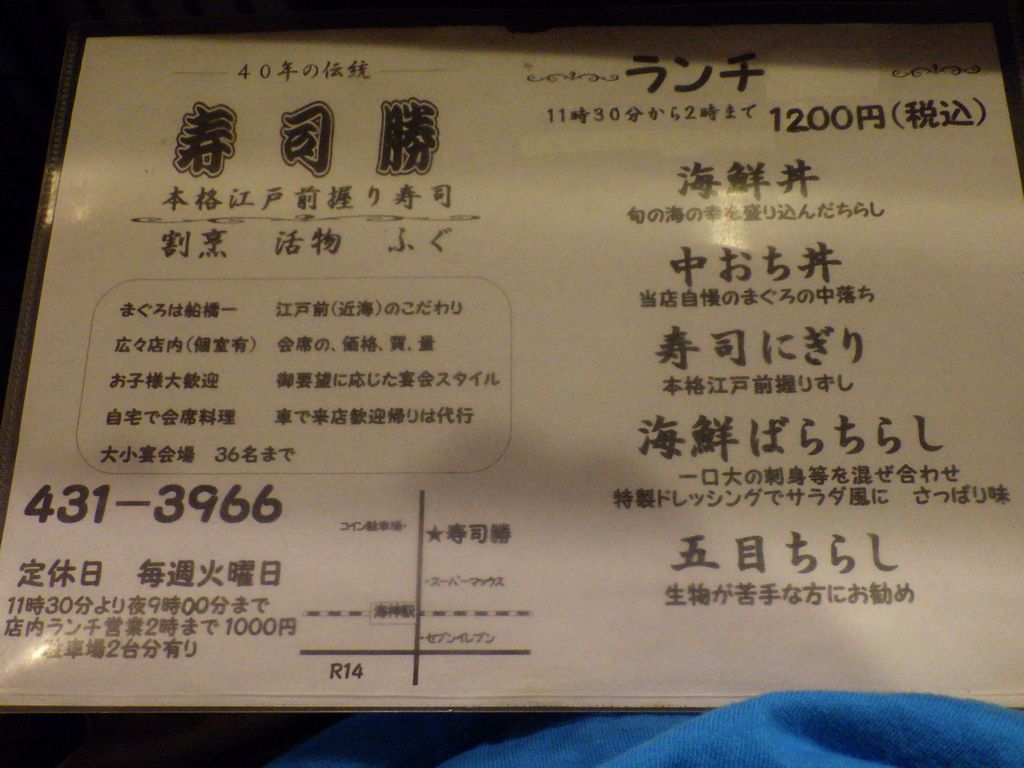 40年の伝統
寿司勝
本格江戸前握り寿司
割烹 活物 ふぐ
まぐろは船橋一 江戸前(近海)のこだわり
広々店内(個室有) 会席の、価格、質、量
お子様大歓迎 御要望に応じた宴会スタイル
自宅で会席料理 車で来店歓迎帰りは代行
大小宴会場 36名まで
431-3966
定休日 毎週火曜日
11時30分より夜9時00分まで
店内ランチ営業2時まで1000円
駐車場2台分有り
コイン駐車場・
★寿司勝
・スーパーマックス
海神駅
・セブンイレブン
R14
ランチ
11時30分から2時まで 1200円(税込)
海鮮丼
旬の海の幸を盛り込んだちらし
中おち丼
当店自慢のまぐろの中落ち
寿司にぎり
本格江戸前握りずし
海鮮ばらちらし
一口大の刺身等を混ぜ合わせ
特製ドレッシングでサラダ風に さっぱり味
五目ちらし
生物が苦手な方にお勧め